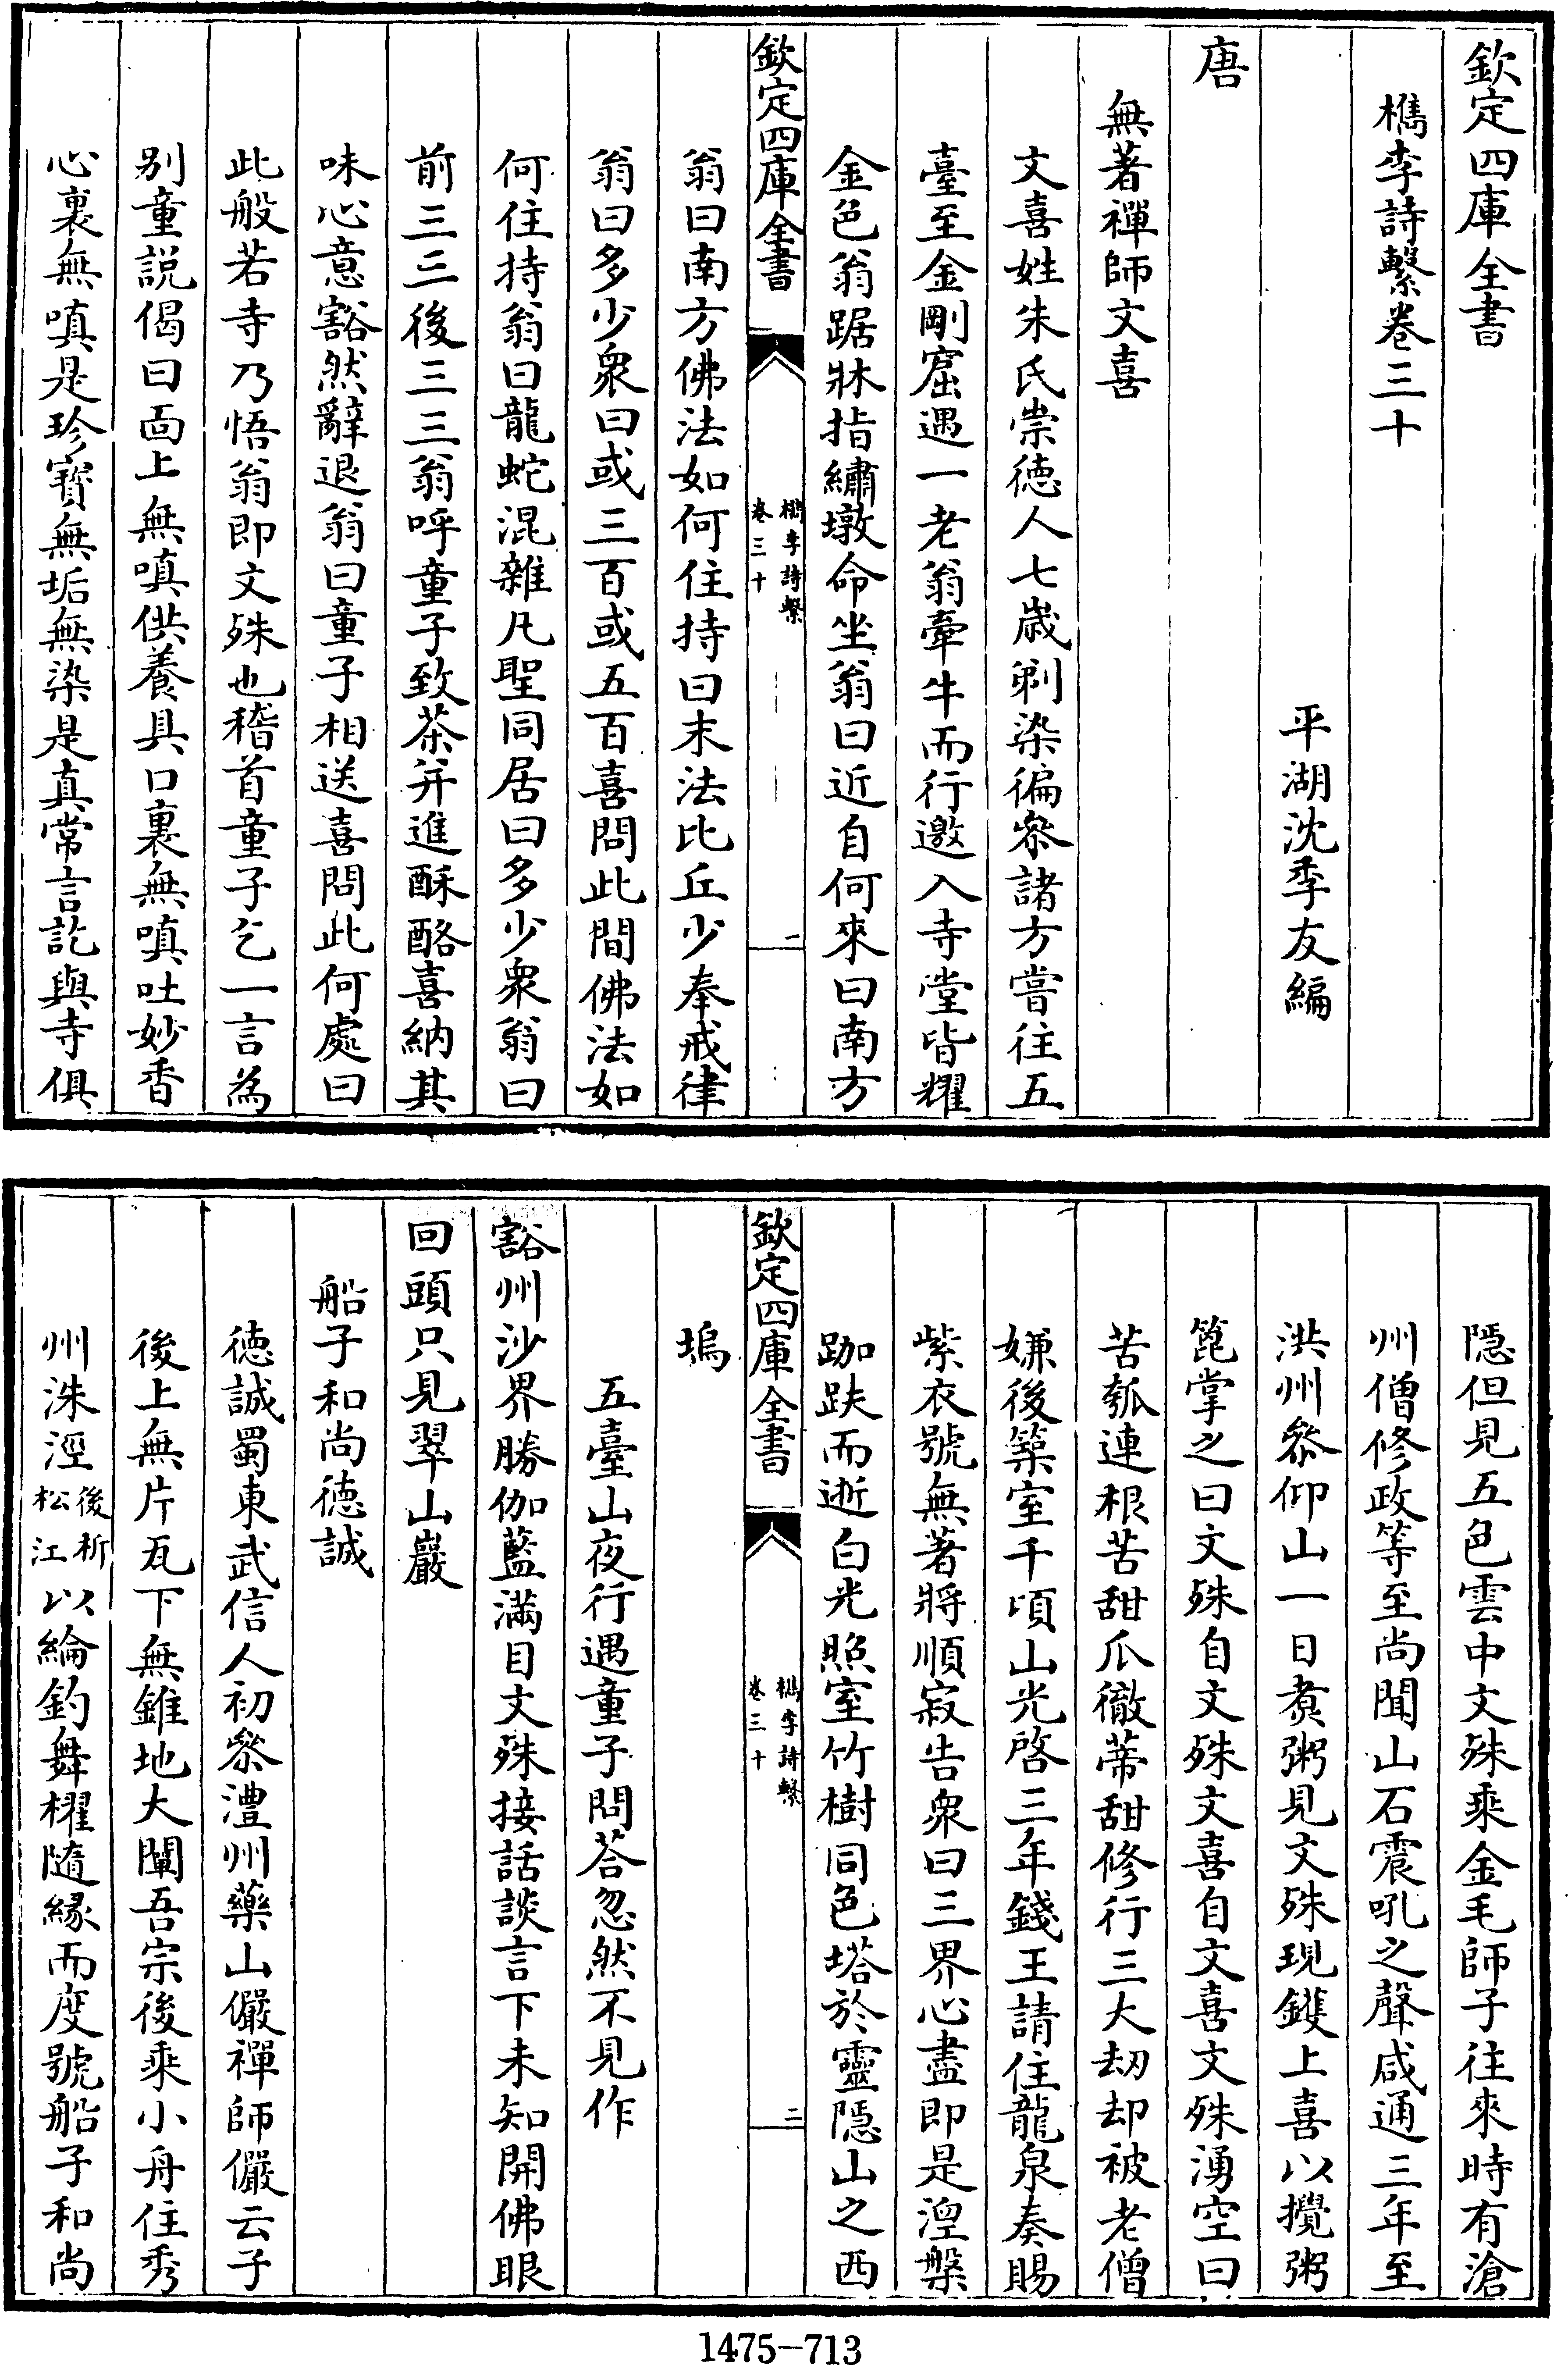 欽定四庫全書
檇李詩繫卷三十
平湖沈季友編
唐
無著禪師文喜
文喜姓朱氏崇德人七歲剃染徧叅諸方嘗往五
臺至金剛窟遇一老翁牽牛而行邀入寺堂皆耀
金色翁踞牀指繡墩命坐翁曰近自何來曰南方
欽定四庫全書
檇李詩繫
卷三十
一
翁曰南方佛法如何住持曰末法比丘少奉戒律
翁曰多少衆曰或三百或五百喜問此間佛法如
何住持翁曰龍蛇混雜凡聖同居曰多少衆翁曰
前三三後三三翁呼童子致茶并進酥酪喜納其
味心意豁然辭退翁曰童子相送喜問此何處曰
此般若寺乃悟翁即文殊也稽首童子乞一言為
别童説偈曰面上無嗔供養具口裏無嗔吐妙香
心裏無嗔是珍寳無垢無染是真常言訖與寺俱
隱但見五色雲中文殊乘金毛師子往來時有滄
州僧修政等至尚聞山石震吼之聲咸通三年至
洪州叅仰山一日煑粥見文殊現鑊上喜以攪粥
篦掌之曰文殊自文殊文喜自文喜文殊湧空曰
苦瓠連根苦甜瓜徹蒂甜修行三大刼却被老僧
嫌後築室千頃山光啓三年錢王請住龍泉奏賜
紫衣號無著將順寂告衆曰三界心盡即是湼槃
跏趺而逝白光照室竹樹同色塔於靈隱山之西
欽定四庫全書
檇李詩繫
卷三十
二
塢
五臺山夜行遇童子問荅忽然不見作
豁州沙界勝伽藍滿目文殊接話談言下未知開佛眼
回頭只見翠山巖
船子和尚德誠
德誠蜀東武信人初叅澧州藥山儼禪師儼云子
後上無片瓦下無錐地大闡吾宗後乘小舟住秀
州洙涇後析松江以綸釣舞櫂隨緣而度號船子和尚
1475-713